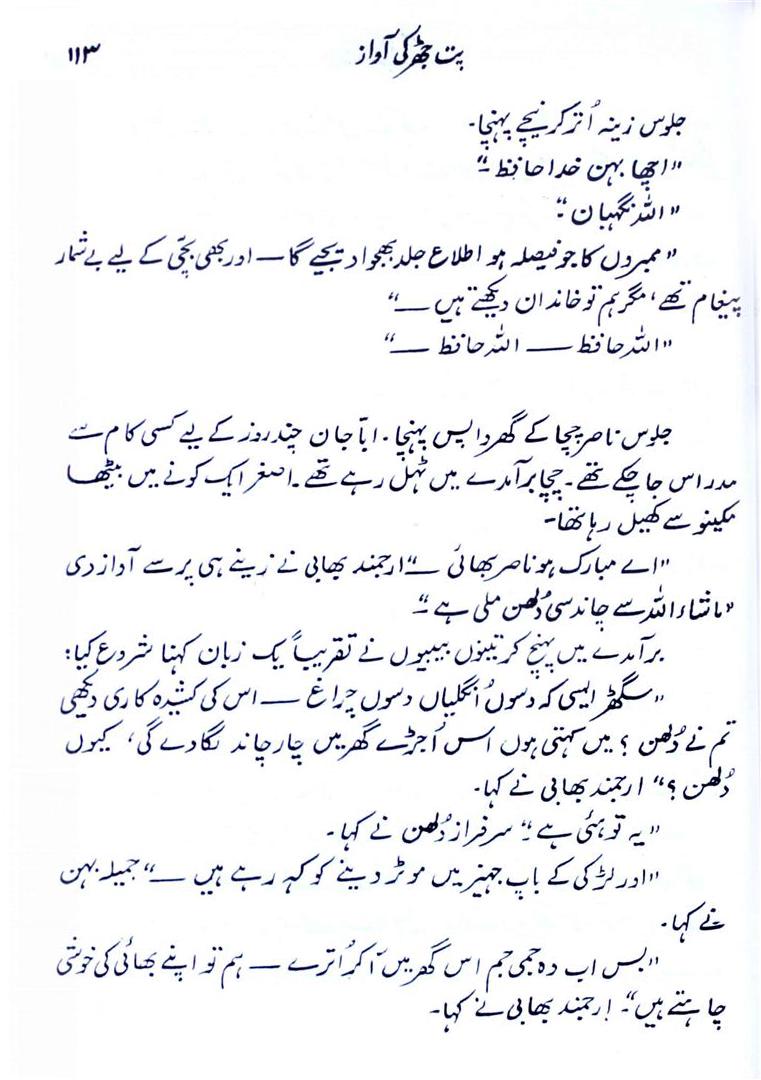 پت جھڑ کی آواز ۱۱۳
جلوس زینہ اُتر کر نیچے پہنچا۔
"اچھا بہن خدا حافظ۔"
"اللہ نگہبان۔"
"ممبروں کا جو فیصلہ ہو اطلاع جلد بھجوا دیجیے گا — اور بھی بچّی کے لیے بے شمار
پیغام تھے، مگر ہم تو خاندان دیکھتے ہیں —"
"اللہ حافظ — اللہ حافظ —"
جلوس ناصر چچا کے گھر واپس پہنچا۔ ابّا جان چند روز کے لیے کسی کام سے
مدراس جا چکے تھے۔ چچا برآمدے میں ٹہل رہے تھے۔ اصغر ایک کونے میں بیٹھا
مکینو سے کھیل رہا تھا۔
"اے مبارک ہو ناصر بھائی —" ارجمند بھابی نے زینے ہی پر سے آواز دی
"ماشاء اللہ سے چاند سی دُلھن ملی ہے۔"
برآمدے میں پہنچ کر تینوں بیبیوں نے تقریباً یک زبان کہنا شروع کیا:
"سگھڑ ایسی کہ دسوں اُنگلیاں دسوں چراغ — اس کی کشیدہ کاری دیکھی
تم نے دُلھن؟ میں کہتی ہوں اس اُجڑے گھر میں چار چاند لگا دے گی، کیوں
دُلھن؟" ارجمند بھابی نے کہا۔
"یہ تو ہئی ہے۔" سرفراز دُلھن نے کہا۔
"اور لڑکی کے باپ جہیز میں موٹر دینے کو کہہ رہے ہیں —" جمیلہ بہن
نے کہا۔
"بس اب وہ جمی جم اس گھر میں آ کر اُترے — ہم تو اپنے بھائی کی خوشی
چاہتے ہیں۔" ارجمند بھابی نے کہا۔